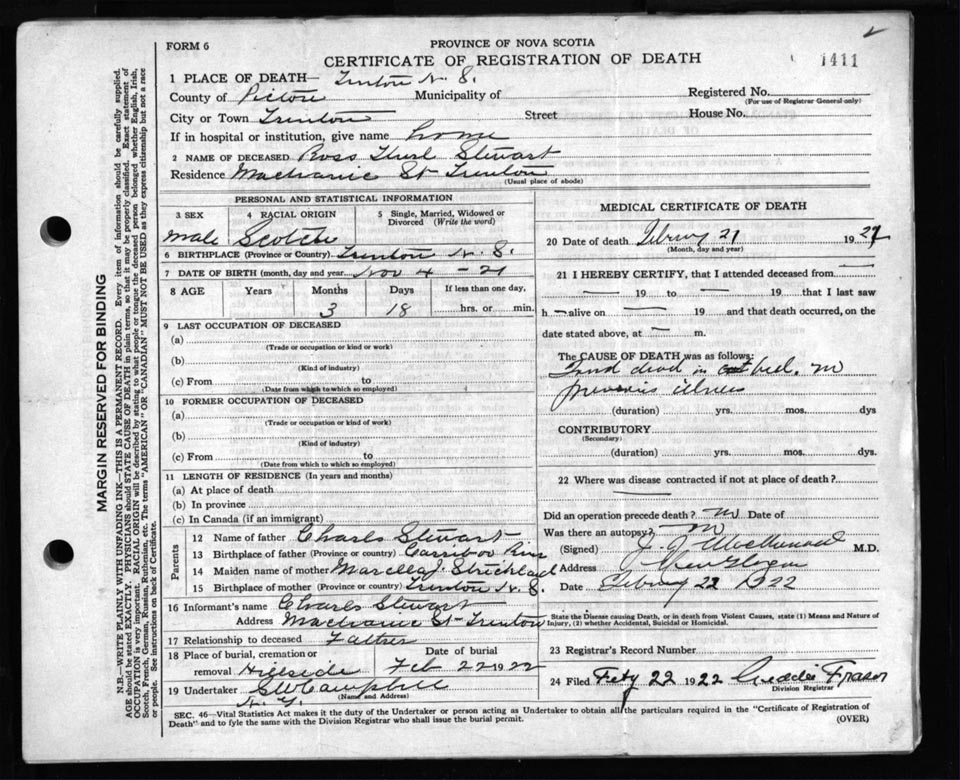 FORM 6
PROVINCE OF NOVA SCOTIA
CERTIFICATE OF REGISTRATION OF DEATH
1411
1 PLACE OF DEATH— Trenton N. S.
County of Pictou Municipality of
Registered No.
(For use of Registrar General only)
City or Town Trenton Street House No.
If in hospital or institution, give name home
2 NAME OF DECEASED Ross Stewart
Residence Mechanic St Trenton
(Usual place of abode)
PERSONAL AND STATISTICAL INFORMATION
3 SEX
4 RACIAL ORIGIN
5 Single, Married, Widowed or Divorced (Write the word)
Male Scotch
6 BIRTHPLACE (Province or Country) Trenton N. S.
7 DATE OF BIRTH (month, day and year) Nov 4 - 21
8 AGE Years Months Days If less than one day,
3 18 hrs. or min.
9 LAST OCCUPATION OF DECEASED
(a)
(Trade or occupation or kind or work)
(b)
(Kind of industry)
(c) From to
(Date from which to which so employed)
10 FORMER OCCUPATION OF DECEASED
(a)
(Trade or occupation or kind of work)
(b)
(Kind of industry)
(c) From to
(Date from which to which so employed)
11 LENGTH OF RESIDENCE (In years and months)
(a) At place of death
(b) In province
(c) In Canada (if an immigrant)
Parents
12 Name of father Charls Stewart
13 Birthplace of father (Province or country) Carriboo River
14 Maiden name of mother Marcella J. Strickland
15 Birthplace of mother (Province or country) Trenton N. S.
16 Informant's name Charls Stewart
Address Mechanic St Trenton
17 Relationship to deceased Father
18 Place of burial, cremation or Date of burial
removal Hillside Feb 22 1922
19 Undertaker Campbell
(Name and Address)
N. G.
MEDICAL CERTIFICATE OF DEATH
20 Date of death Febry 21 1922
(Month, day and year)
21 I HEREBY CERTIFY, that I attended deceased from —
— 19 to — 19 that I last saw
h — alive on — 19 and that death occurred, on the
date stated above, at — m.
The CAUSE OF DEATH was as follows:
Found dead in bed. no
previous illness
(duration) yrs. mos. dys
CONTRIBUTORY
(Secondary)
(duration) yrs. mos. dys.
22 Where was disease contracted if not at place of death?
Did an operation precede death? no
Was there an autopsy? no
(Signed) M.D.
Address New Glasgow
Date Febry 22 1922
State the Disease causing Death, or in death from Violent Causes, state (1) Means and Nature of
Injury, (2) whether Accidental, Suicidal or Homicidal.
23 Registrar's Record Number
24 Filed Feby 22 1922 Fraser
Division Registrar
SEC. 46—Vital Statistics Act makes it the duty of the Undertaker or person acting as Undertaker to obtain all the particulars required in the "Certificate of Registration of
Death" and to fyle the same with the Division Registrar who shall issue the burial permit.
(OVER)
MARGIN RESERVED FOR BINDING
N.B.—WRITE PLAINLY WITH UNFADING INK—THIS IS A PERMANENT RECORD. Every item of information should be carefully supplied.
AGE should be stated EXACTLY. PHYSICIANS should STATE CAUSE OF DEATH in plain terms, so that it may be properly classified. Exact statement of
OCCUPATION is very important. RACIAL ORIGIN will be described by stating to what people or tongue the deceased person belonged whether English, Irish,
Scotch, French, German, Russian, Ruthenian, etc. The terms "AMERICAN" OR "CANADIAN" MUST NOT BE USED as they express citizenship but not a race
or people. See instructions on back of Certificate.